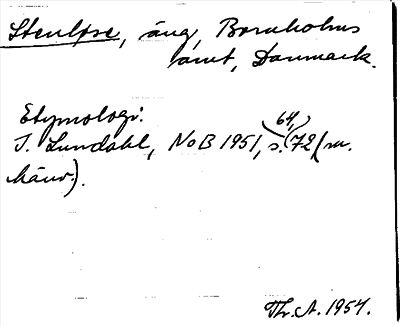 Stenløse, äng, Bornholms
amt, Danmark.
Etymologi:
I. Lundahl, NoB 1951, s. 64, 72 (m.
hänv.).
Th. A. 1954.